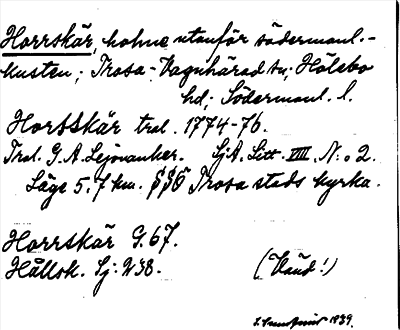 Horrskär, holme utanför södermanl.-
kusten; Trosa-Vagnhärad sn; Hölebo
hd; Södermanl. l.
Horsskär trol. 1774-76.
Trol. G. A. Lejonanker. SjA. Litt. VIII. N:o 2.
Läge 5,7 km. SSÖ Trosa stads kyrka.
Horrskär G. 67.
Hållsk. Sj: 238.
(Känd!)
1939.